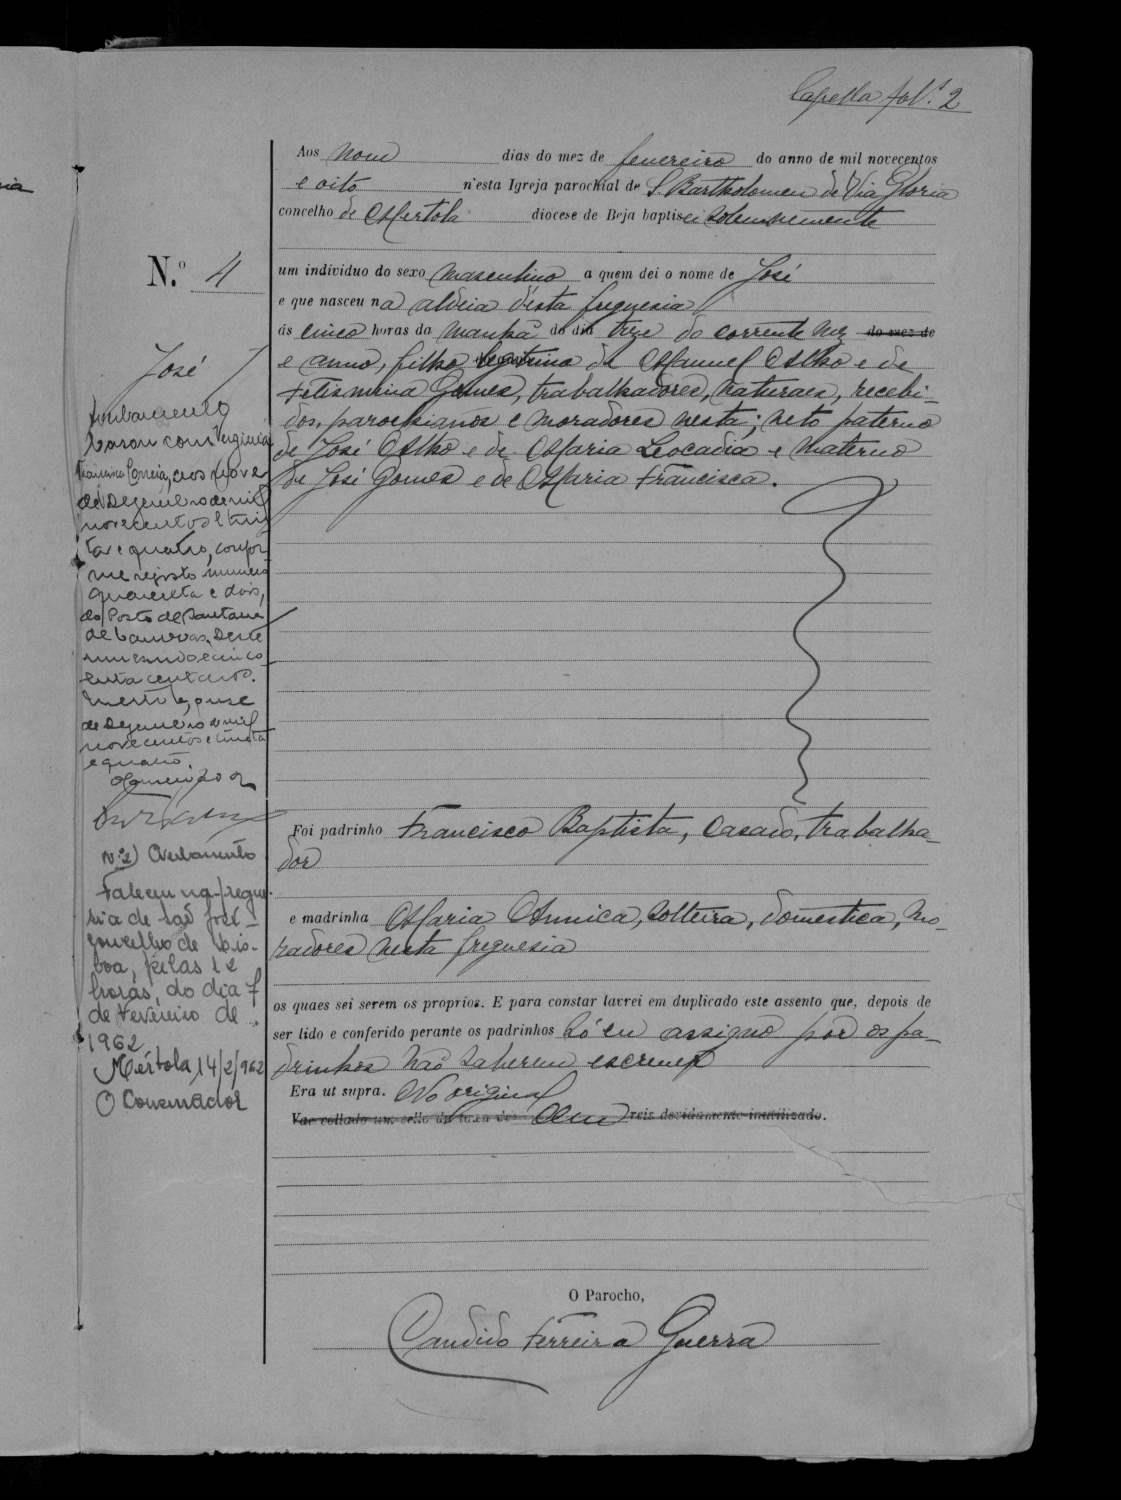 Capella fol. 2
Aos nove dias do mez de fevereiro do anno de mil novecentos
e oito n'esta Igreja parochial de S. Bartholomeu de Via Gloria
concelho de Mertola diocese de Beja baptisei solemnemente
N.º 4
um individuo do sexo masculino a quem dei o nome de José
e que nasceu na aldeia d'esta freguesia
ás cinco horas da manhã do dia treze do corrente mez do mez de
e anno, filho legitimo de Manuel e de
Felismina Gomes, trabalhadores, naturaes, recebi-
dos, parochianos e moradores nesta; neto paterno
de José e de Maria Leocadia e materno
de José Gomes e de Maria Francisca.
José
Casou com Virginia
Correia, aos nove
de Dezembro de mil
novecentos e trin
ta e quatro, confor
me registo numero
quarenta e dois,
do Posto de Santana
de Cambas. Deste
um escudo e cinco
enta centavos.
Mertola, onze
de Dezembro de mil
novecentos e trinta
e quatro.
Foi padrinho Francisco Baptista, casado, trabalha-
dor
e madrinha Maria Annica, solteira, domestica, mo-
radores nesta freguesia
os quaes sei serem os proprios. E para constar lavrei em duplicado este assento que, depois de
ser lido e conferido perante os padrinhos só eu assigno por os pa-
drinhos não saberem escrever
Era ut supra. No original
Vae collado um sello da taxa de cem reis devidamente inutilizado.
N.º 2) Averbamento
Faleceu na fregue-
sia de São José -
concelho de Lis-
boa, pelas 12
horas, do dia 7
de Fevereiro de
1962
Mértola, 14/2/962
O Conservador
O Parocho,
Candido Ferreira Guerra